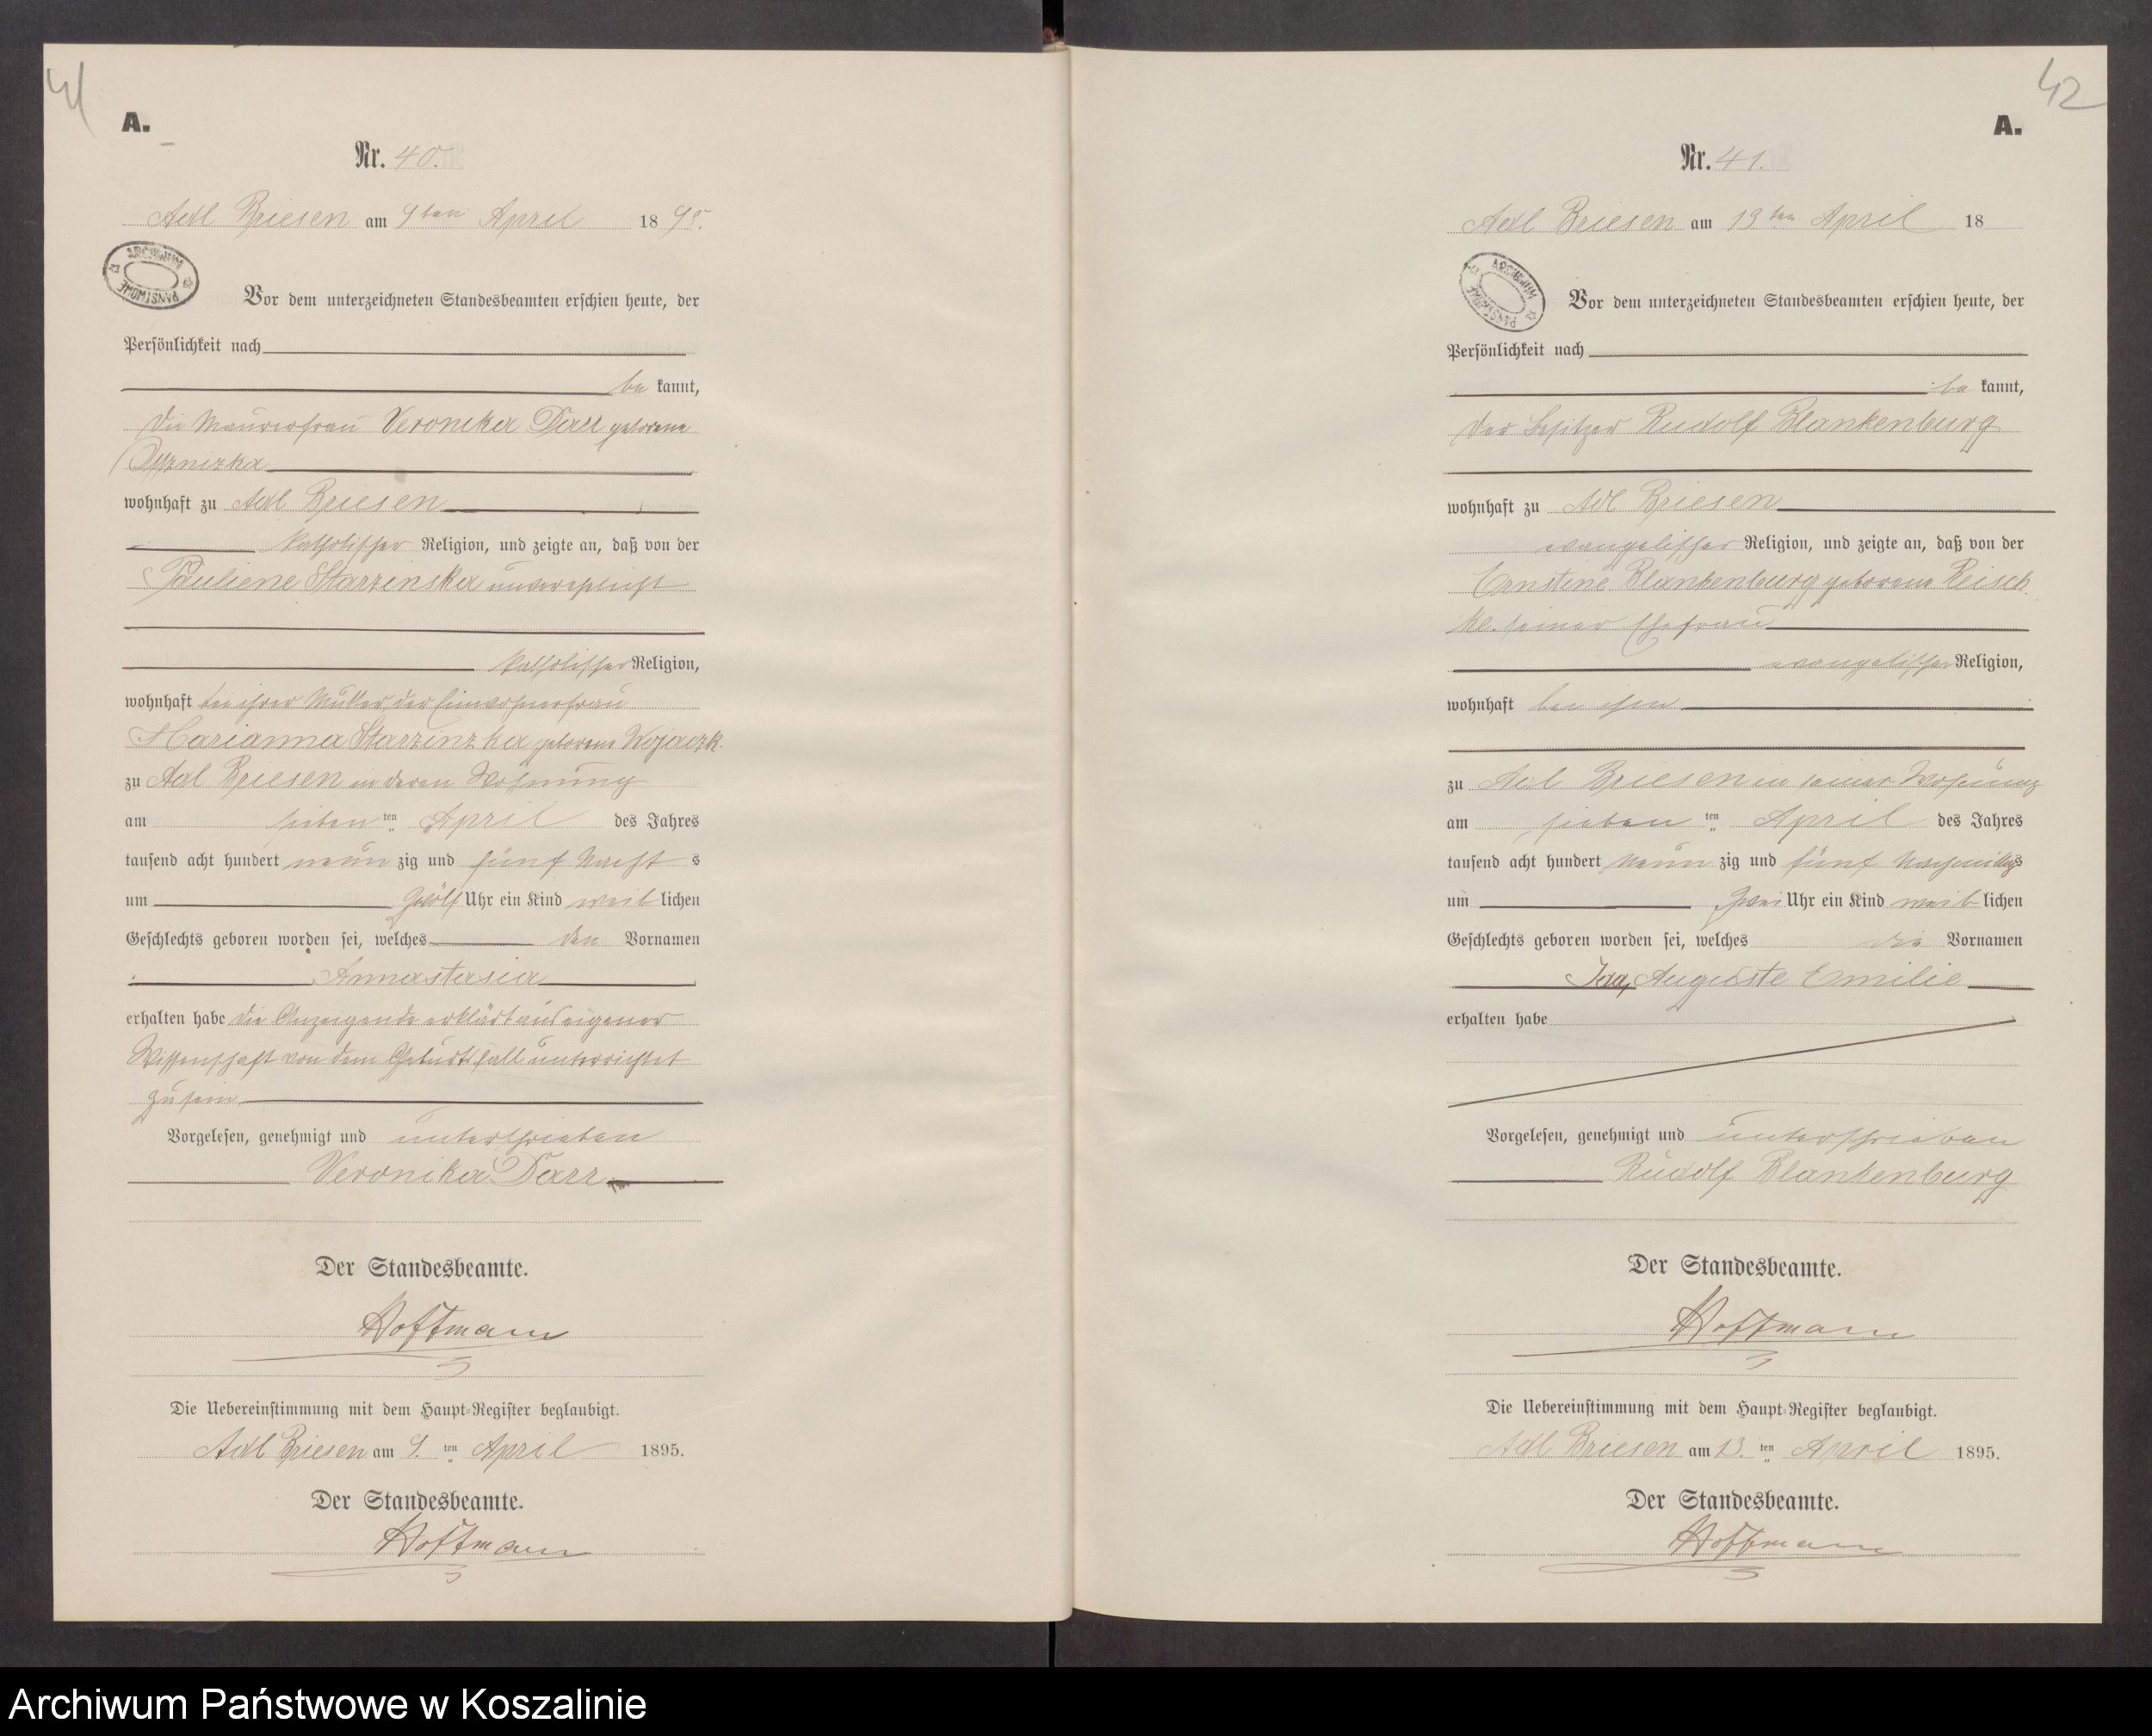 41
A.
Nr. 40.
Adl Briesen am 9ten April 1895.
ARCHIWUM PAŃSTWOWE
Vor dem unterzeichneten Standesbeamten erschien heute, der
Persönlichkeit nach
be kannt,
die Maurerfrau Veronika Darr geborene
wohnhaft zu Adl Briesen
katholischer Religion, und zeigte an, daß von der
Pauliene Starzinska unverehelicht
katholischer Religion,
wohnhaft bei ihrer Mutter, der Einwohnerfrau
Marianna Starzinzka geborene Wojaczk.
zu Adl Briesen in deren Wohnung
am sieben ten April des Jahres
tausend acht hundert neun zig und fünf Nacht s
um zwölf Uhr ein Kind weib lichen
Geschlechts geboren worden sei, welches den Vornamen
Annastasia
erhalten habe die Anzeigende erklärt aus eigener
Wissenschaft von dem Geburtsfall unterrichtet
zu sein
Vorgelesen, genehmigt und unterschrieben
Veronika Darr
Der Standesbeamte.
Hoffmann
Die Uebereinstimmung mit dem Haupt-Register beglaubigt.
Adl Briesen am 9. ten April 1895.
Der Standesbeamte.
Hoffmann
42
A.
Nr. 41.
Adl Briesen am 13ten April 18
ARCHIWUM PAŃSTWOWE
Vor dem unterzeichneten Standesbeamten erschien heute, der
Persönlichkeit nach
be kannt,
der Besitzer Rudolf Blankenburg
wohnhaft zu Adl Briesen
evangelischer Religion, und zeigte an, daß von der
Ernstine Blankenburg geborene Reisch
ke. seiner Ehefrau
evangelischer Religion,
wohnhaft bei ihm
zu Adl Briesen in seiner Wohnung
am sieben ten April des Jahres
tausend acht hundert neun zig und fünf Nachmittags
um zwei Uhr ein Kind weib lichen
Geschlechts geboren worden sei, welches die Vornamen
Ida, Auguste Emilie
erhalten habe
Vorgelesen, genehmigt und unterschrieben
Rudolf Blankenburg
Der Standesbeamte.
Hoffmann
Die Uebereinstimmung mit dem Haupt-Register beglaubigt.
Adl Briesen am 13. ten April 1895.
Der Standesbeamte.
Hoffmann
Archiwum Państwowe w Koszalinie